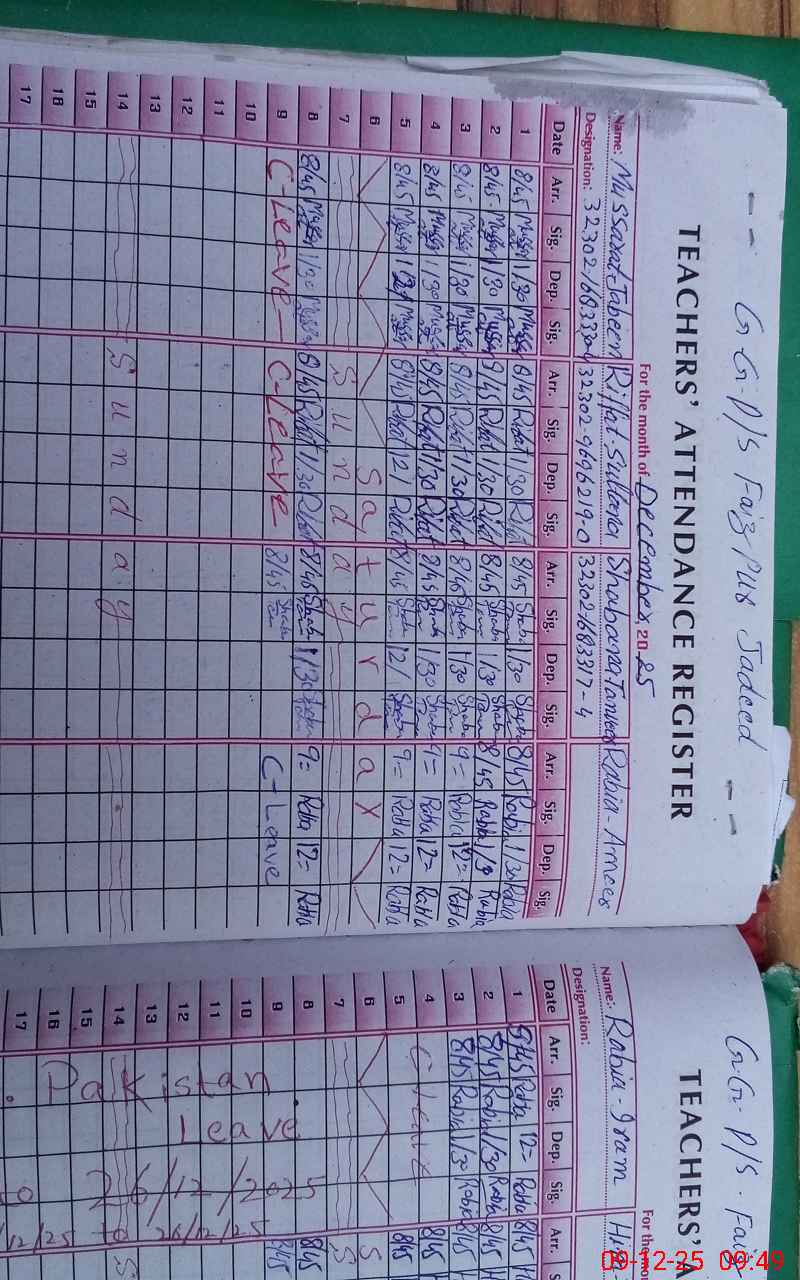 G.G.P/S Faiz Pur Jadeed
TEACHERS' ATTENDANCE REGISTER
For the month of December, 2025
Name: Mussarat Jabeen Riffat Sultana Shabana Tanveer Rabia - Ameer
Designation: 32302-9696219-0 32302-1683317-4
Date Arr. Sig. Dep. Sig. Arr. Sig. Dep. Sig. Arr. Sig. Dep. Sig. Arr. Sig. Dep. Sig.
1 8/45 1/30 8/45 Rifat 1/30 Rifat 8/45 1/30 8/45 Rabia 1/30 Rabia
2 8/45 1/30 8/45 Rifat 1/30 Rifat 8/45 1/30 8/45 Rabia 1/30 Rabia
3 8/45 1/30 8/45 Rifat 1/30 Rifat 8/45 1/30 9= Rabia 12= Rabia
4 8/45 1/30 8/45 Rifat 1/30 Rifat 8/45 1/30 9= Rabia 12= Rabia
5 8/45 8/45 Rifat 12/ Rifat 8/45 12/ 9= Rabia 12= Rabia
6 Saturday
7 Sunday
8 8/45 1/30 8/45 Rifat 1/30 Rifat 8/45 1/30 9= Rabia 12= Rabia
9 C-Leave C-Leave 8/45 C-Leave
10
11
12
13
14 Sunday
15
16
17
G.G. P/S. Faiz
TEACHERS' A
For the mo
Name: Rabia - Iram
Designation:
Date Arr. Sig. Dep. Sig. Arr.
1 8/45 Rabia 12= Rabia 8/45
2 8/45 Rabia 1/30 Rabia 8/45
3 8/45 Rabia 1/30 Rabia 8/45
4 C-Leave 8/45
5 8/45
6 S
7 S
8 8/45
9 8/45
10
11
12
13
14 S
15
16
17
Pakistan
Leave
26/12/2025
12/25 to 26/12/25
09-12-25 09:49